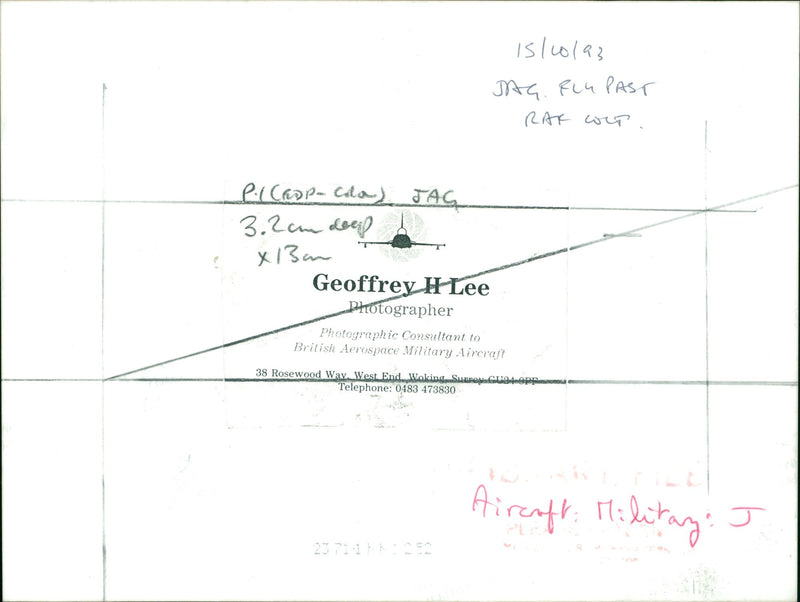 15/10/93
JAG. FLY PAST
RAF COLT.
P.1 (RDP-Color) JAG
3.2cm deep
x 13cm
Geoffrey H Lee
Photographer
Photographic Consultant to
British Aerospace Military Aircraft
38 Rosewood Way, West End, Woking, Surrey GU24 9PF
Telephone: 0483 473830
Aircraft: Military: J